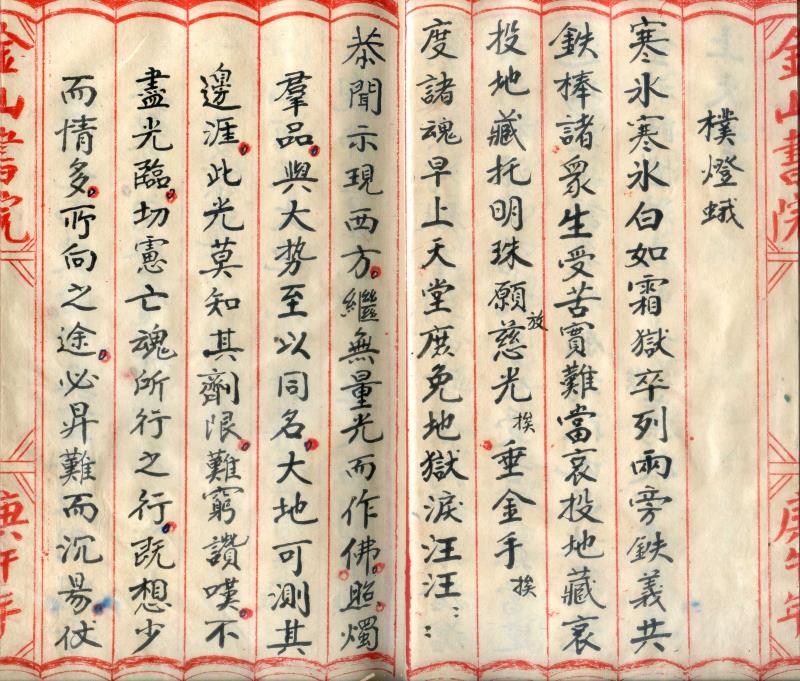 金山書院
庚午年
樸燈蛾
寒氷寒氷白如霜獄卒列兩旁鉄義共
鉄棒諸眾生受苦實難當哀投地藏哀
投地藏托明珠願放慈光挨垂金手挨
度諸魂早上天堂庶免地獄淚汪汪::
恭聞示現西方。繼無量光而作佛。照燭
羣品。與大势至以同名。大地可測其
邊涯。此光莫知其劑限。難窮讚嘆。不
盡光臨。切憲亡魂所行之行。既想少
而情多。所向之途。必昇難而沉昜仗
金山書院
庚午年